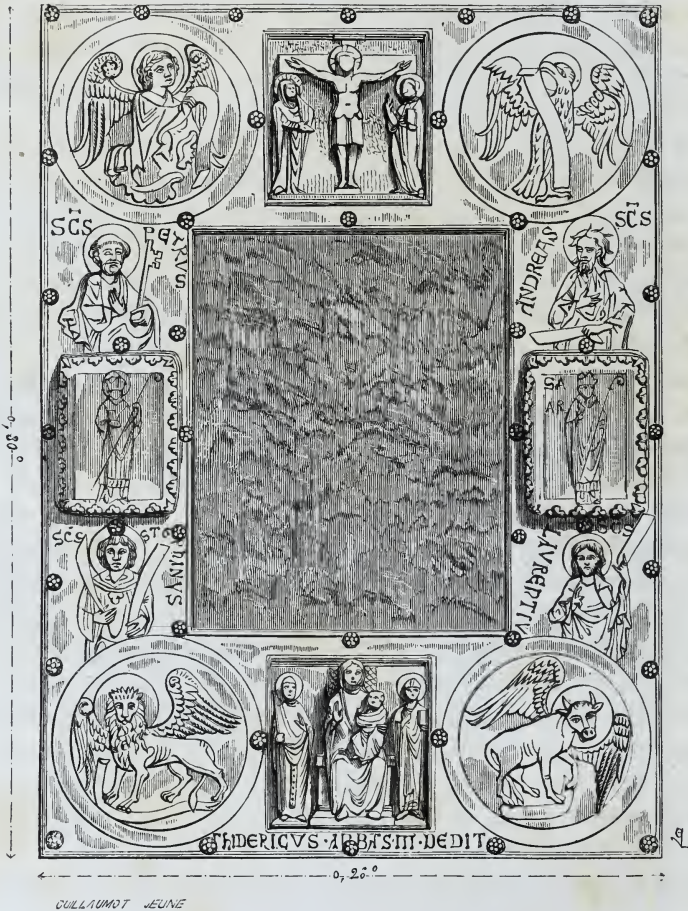 SCS
PETRVS
ANDREAS
SCS
SA
AR
0,30°
SCS
ST
SANIV
LAVRENTIV
SCS
ThIDERICVS·ABBAS·III·DEDIT
0,20°
GUILLAUMOT JEUNE